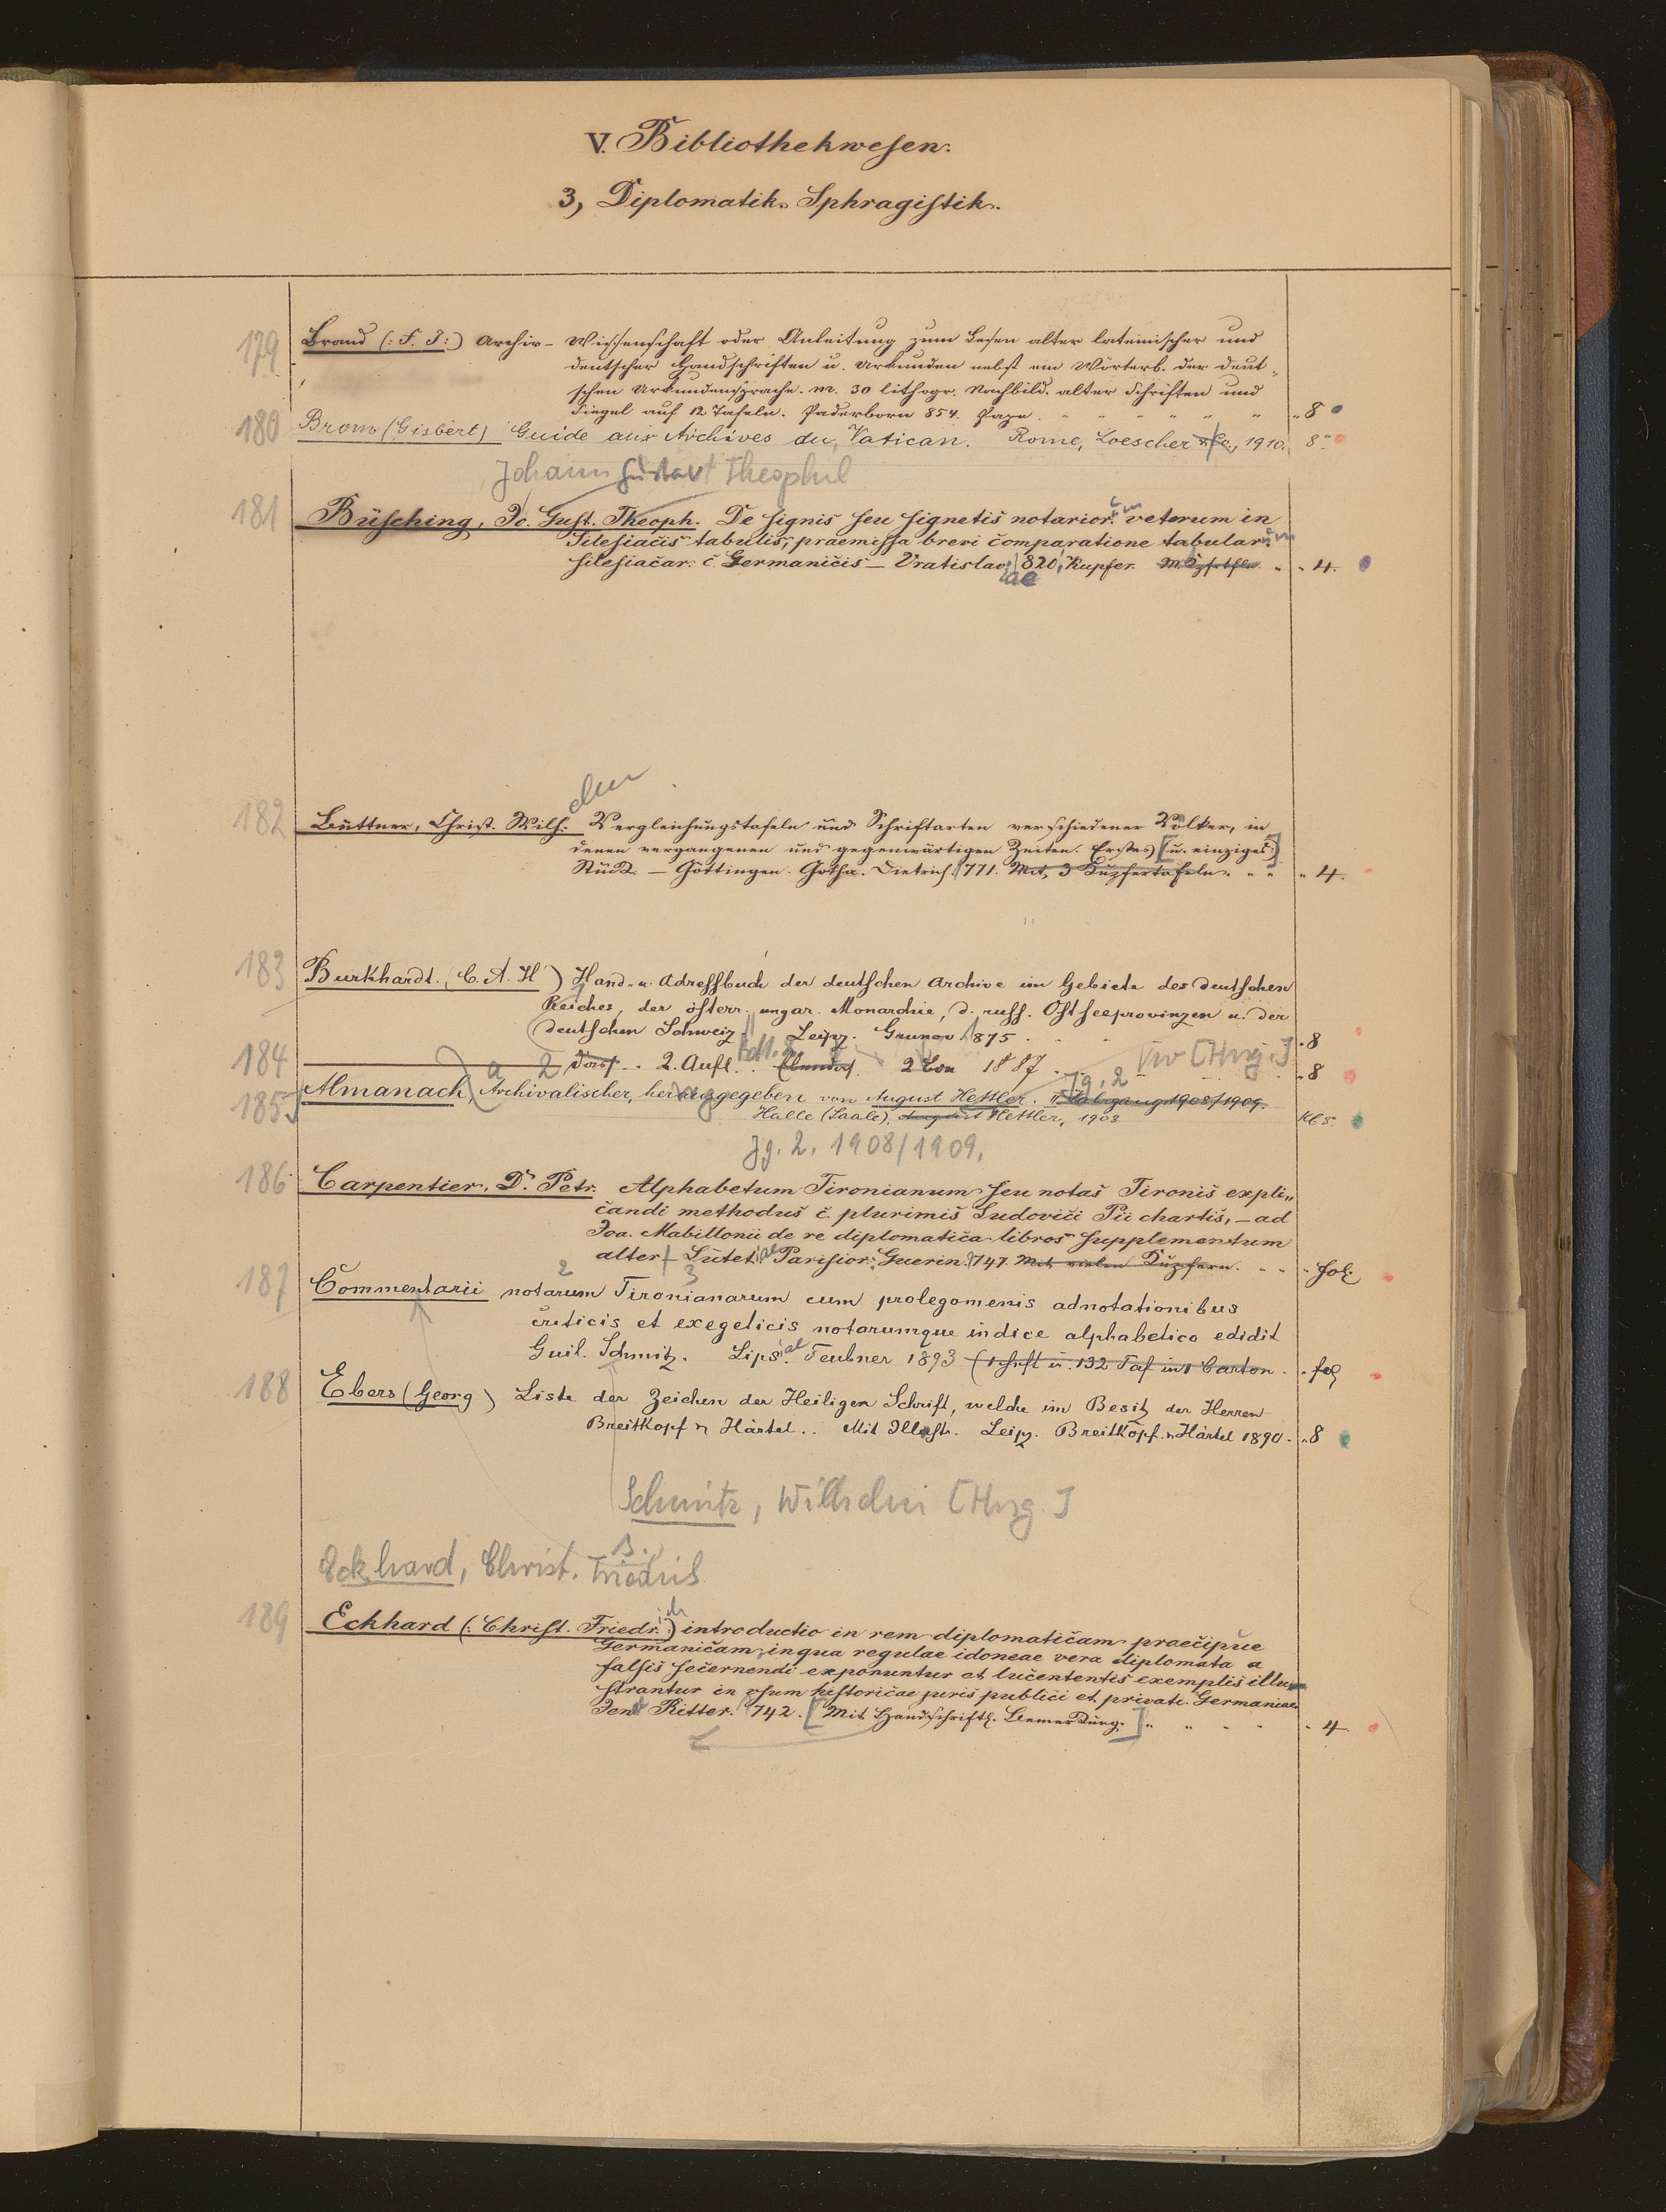 V. Bibliothekwesen.
3, Diplomatik. Sphragistik.
179 Brand (: F. J :) Archiv-Wissenschaft oder Anleitung zum Lesen alter lateinischer und
deutscher Handschriften u. Urkunden nebst em Wörterb. der deut-
schen Urkundensprache. m. 30 lithogr. Nachbild. alter Schriften und
Siegel auf 12 Tafeln. Paderborn 854. Pape. " 8
180 Brom (Gisbert) Guide aux Archives du Vatican. Rome, Loescher & Co., 1910. 8°
Johann Gustav Theophil
181 Büsching, Jo. Gust. Theoph. De signis seu signetis notarior.um veterum in
Silesiacis tabulis, praemissa brevi comparatione tabular.um
silesiacar. c Germanicis – Vratislav.iae 820, Kupfer. M. Kpfrtfln " " 4.
elm
182 Büttner, Christ. Wilh. Vergleichungstafeln und Schriftarten verschiedener Völker, in
denen vergangenen und gegenwärtigen Zeiten. Erstes [u. einziges:]
Stück. – Göttingen. Gotha. Dietrich. 771. Mit 3 Kupfertafeln " " " 4.
183 Burkhardt. (C. A. H) Hand- u. Adressbuch der deutschen Archive im Gebiete des deutschen
Reiches, der österr. ungar. Monarchie, d. russ. Ostseeprovinzen u. der
deutschen Schweiz. Leipz. Grunow 1875 . . " 8
184 2. Aufl. 2 1887 . [Hrsg.] " 8
185 Almanach, Archivalischer, herausgegeben von August Hettler. II Jahrgang 1908/1909. Jg. 2
Halle (Saale). August Hettler, 1908 Kl 8°
Jg. 2. 1908/1909.
186 Carpentier, D. Petr. Alphabetum Tironianum seu notas Tironis expli„
candi methodus c. plurimis Ludovici Pii chartis, – ad
Joa. Mabillonii de re diplomatica libros supplementum
alter – Lutet.iae Parisior: Guerin. 747. Mit vielen Kupfern. . . " fol.
187 Commentarii notarum Tironianarum cum prolegomenis adnotationibus
criticis et exegeticis notarumque indice alphabetico edidit
Guil. Schmitz. Lips.iae Teubner 1893 (1 Heft u. 132 Taf in 1 Carton . " fol
188 Ebers (Georg) Liste der Zeichen der Heiligen Schrift, welche im Besitz der Herren
Breitkopf u Härtel . . Mit Illustr. Leipz. Breitkopf u Härtel 1890 . " 8
Schmitz, Wilhelm [Hrsg.]
Eckhard, Christ. Friedrich
189 Eckhard (: Christ. Friedr.ich :) introductio in rem diplomaticam praecipue
Germanicam, in qua regulae idoneae vera diplomata a
falsis secernendi exponuntur et lucententis exemplis illu
strantur in usum historicae juris publici et privati. Germaniae
Jena Ritter. 742. [Mit Handschriftl. Bemerkung.] " " " " 4